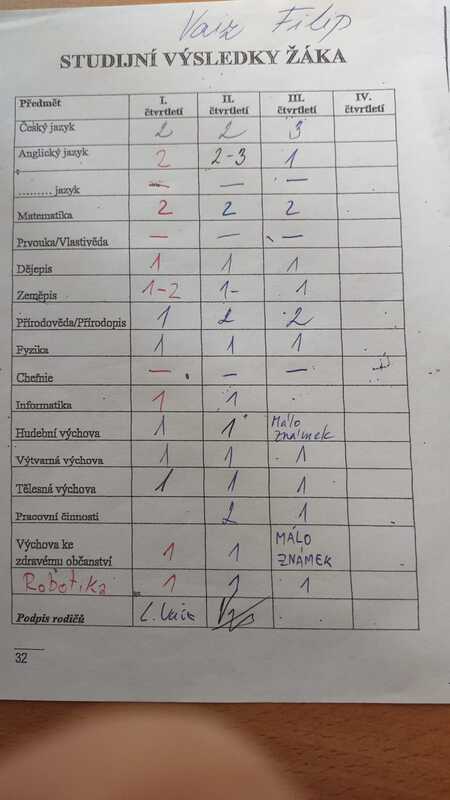 Vaiz Filip
STUDIJNÍ VÝSLEDKY ŽÁKA
Předmět I. čtvrtletí II. čtvrtletí III. čtvrtletí IV. čtvrtletí
Český jazyk 2 2 3
Anglický jazyk 2 2-3 1
......... jazyk — — —
Matematika 2 2 2
Prvouka/Vlastivěda — — —
Dějepis 1 1 1
Zeměpis 1-2 1- 1
Přírodověda/Přírodopis 1 2 2
Fyzika 1 1 1
Chemie — — —
Informatika 1 1
Hudební výchova 1 1 Málo známek
Výtvarná výchova 1 1 1
Tělesná výchova 1 1 1
Pracovní činnosti 2 1
Výchova ke zdravému občanství 1 1 MÁLO ZNÁMEK
Robotika 1 1 1
Podpis rodičů L. Vaiz
32